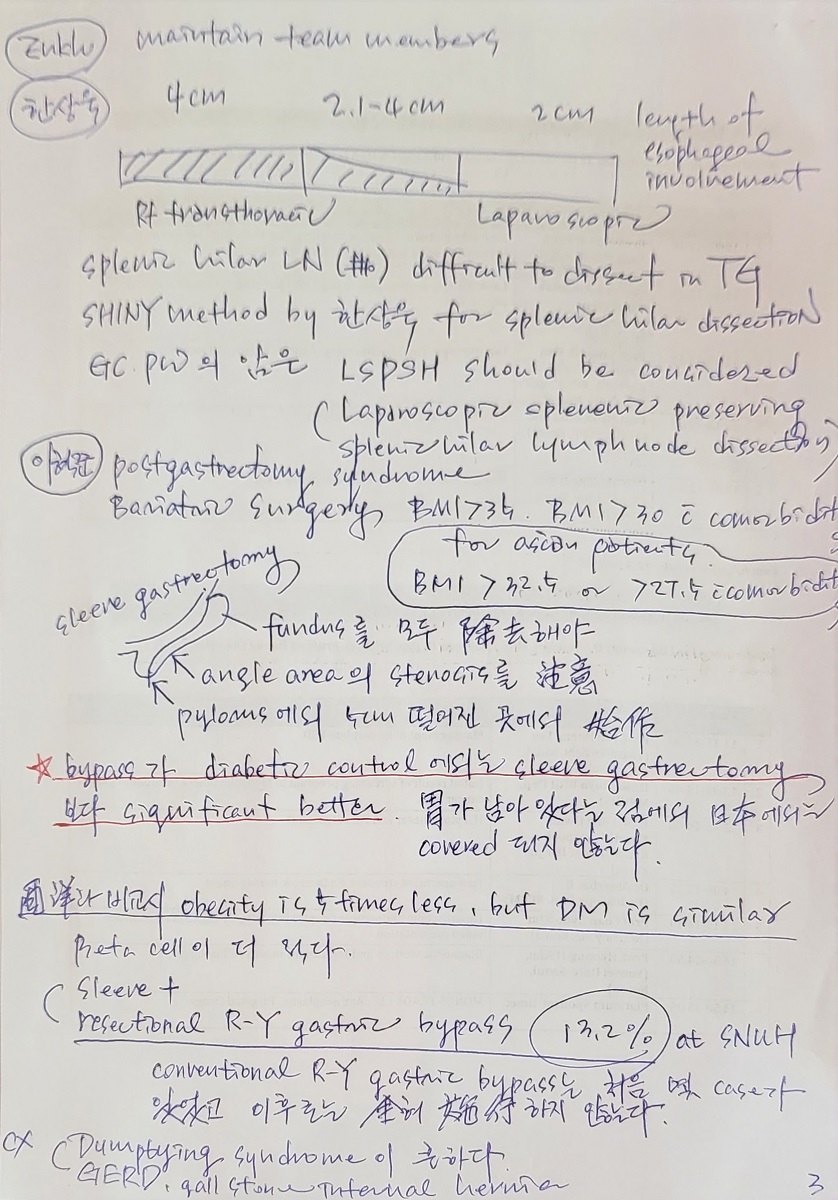 maintain team members
한상욱
4cm 2.1-4cm 2cm length of
esophageal
involvement
Rt transthoracic Laparoscopic
splenic hilar LN (#10) difficult to dissect in TG
SHINY method by 한상욱 for splenic hilar dissection
GC PW의 암은 LSPSH should be considered
(Laparoscopic preserving
splenic hilar lymph node dissection)
이혁준 postgastrectomy syndrome
Bariatric surgery BMI>35. BMI>30 c comorbidit
for asian patients
BMI >32.5 or >27.5 c comorbidit
sleeve gastrectomy
fundus를 모두 除去해야
angle area의 stenosis를 注意
pylorus에서 5cm 떨어진 곳에서 始作
☆ bypass가 diabetic control에서는 sleeve gastrectomy
보다 significant better. 胃가 남아 있다는 점에서 日本에서는
covered 되지 않는다.
西洋과 비교시 obesity is 5 times less, but DM is similar
Beta cell이 더 작다.
( sleeve +
resectional R-Y gastric bypass 13.2% at SNUH
conventional R-Y gastric bypass는 처음 몇 case가
있었고 이후로는 全혀 施行하지 않는다.
CX ( Dumptying syndrome이 흔하다
GERD, gall stone internal hernia
3